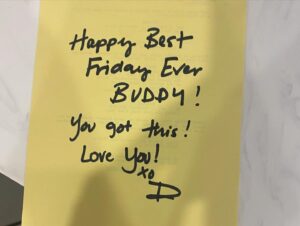 Happy Best
Friday Ever
BUDDY!
You got this!
Love You!
xo
D